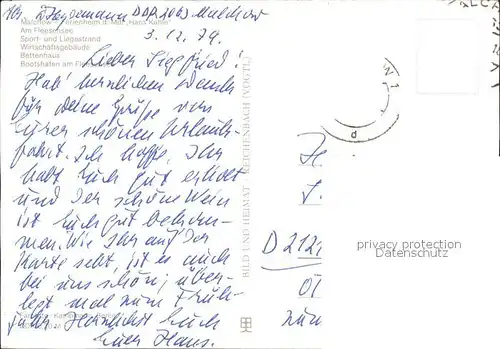 Heydemann DDR 2063 Malchow
Malchow Ferienheim d. MdI „Hans Kahle“
Am Fleesensee
Sport- und Liegestrand
Wirtschaftsgebäude
Bettenhaus
Bootshafen am
3.12.79
Lieber Siegfried!
Hab' herzlichen Dank
für Deine Grüße von
Eurer schönen Urlaubs-
fahrt. Ich hoffe, Ihr
habt Euch gut erholt
und der schöne Wein
ist Euch gut bekom-
men. Wie Ihr auf der
Karte seht, ist es auch
bei uns schön; über-
legt mal zum Früh-
jahr. Herzlichst Euch
Euer Hans.
BILD UND HEIMAT REICHENBACH (VOGTL)
D 212
privacy protection
Datenschutz